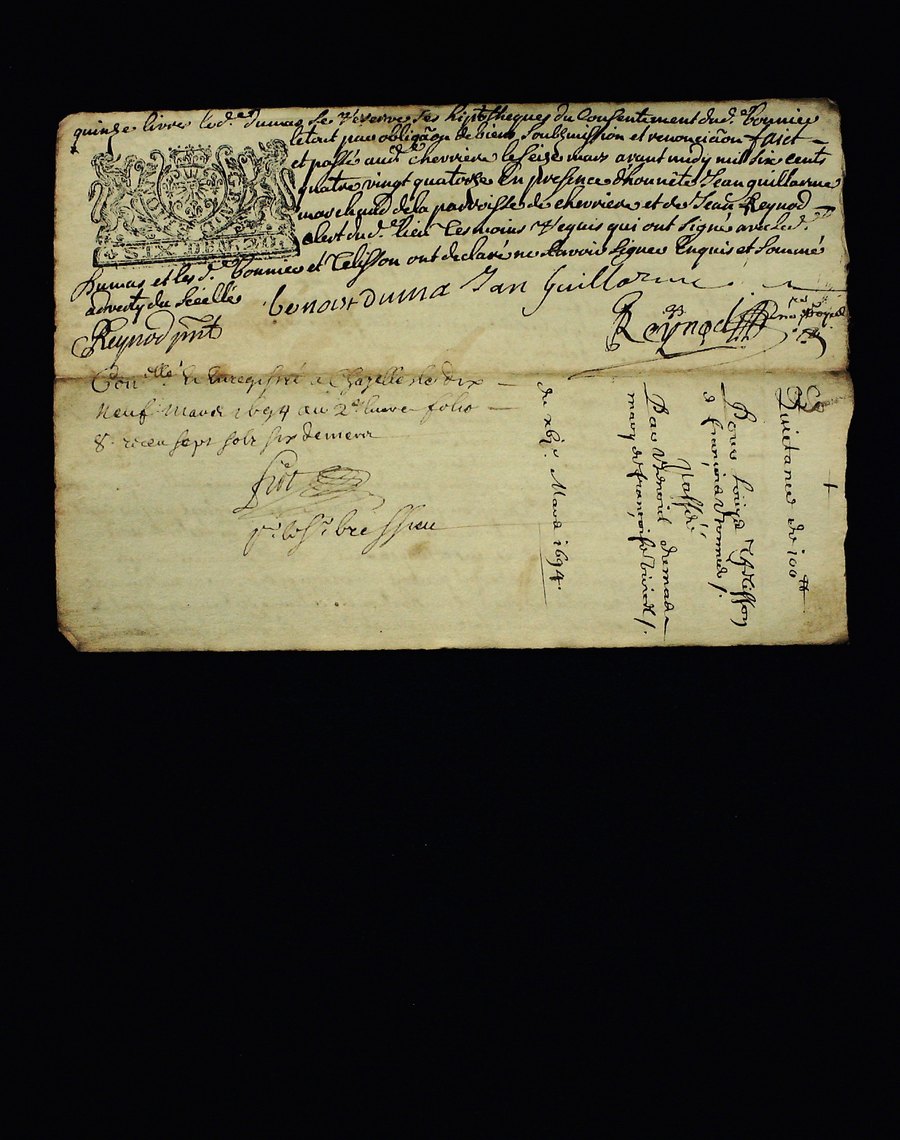 quinse livre led.t dumas se reserve ses hipotheques du Consentement dud.t bonnier
letout par obligãon de biens soubzmission et renonciãon faict
et passé aud.t chevriere le seise mars avant midy mil six cents
quatre vingt quatorse En presence d'honnete Jean guillarme
marchand de la parroisse de chevriere et de Jean Reynod
clert dud.t lieu tesmoins requis qui ont signé avec led.t
Dumas et les d.t bonnier et Telisson ont declaré ne scavoir signer Enquis et sommé
adverty du scéellé
benoist duma Jan Guillarme
Reynod pnt
Reynod
SIX DEN
Con.ellé et Enregistré a Chazelle le dix
neuf mars 1694 au 2.e livre folio
8. receu sept solz six deniers
Quictance de 100
Pour Louise Telisson
Passée
Par Benoist dumas
mary de françoise
du xbj.e Mars 1694.